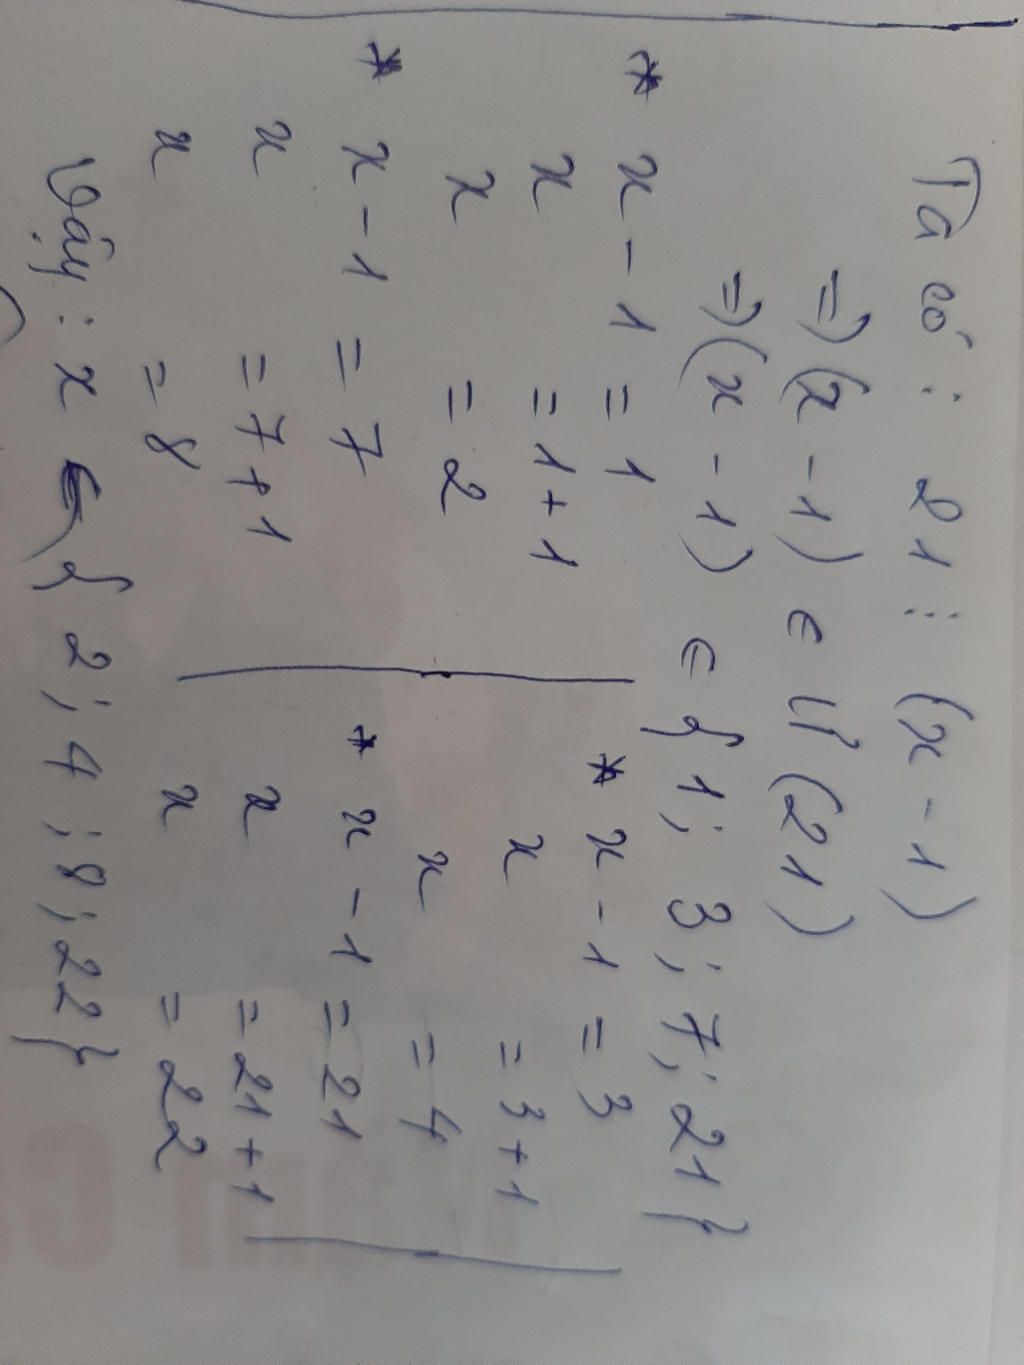 Ta có : 21 ⋮ (x - 1)
=> (x - 1) ∈ Ư (21)
=> (x - 1) ∈ { 1; 3; 7; 21 }
* x - 1 = 1
x = 1 + 1
x = 2
* x - 1 = 7
x = 7 + 1
x = 8
* x - 1 = 3
x = 3 + 1
x = 4
* x - 1 = 21
x = 21 + 1
x = 22
Vậy : x ∈ { 2; 4; 8; 22 }